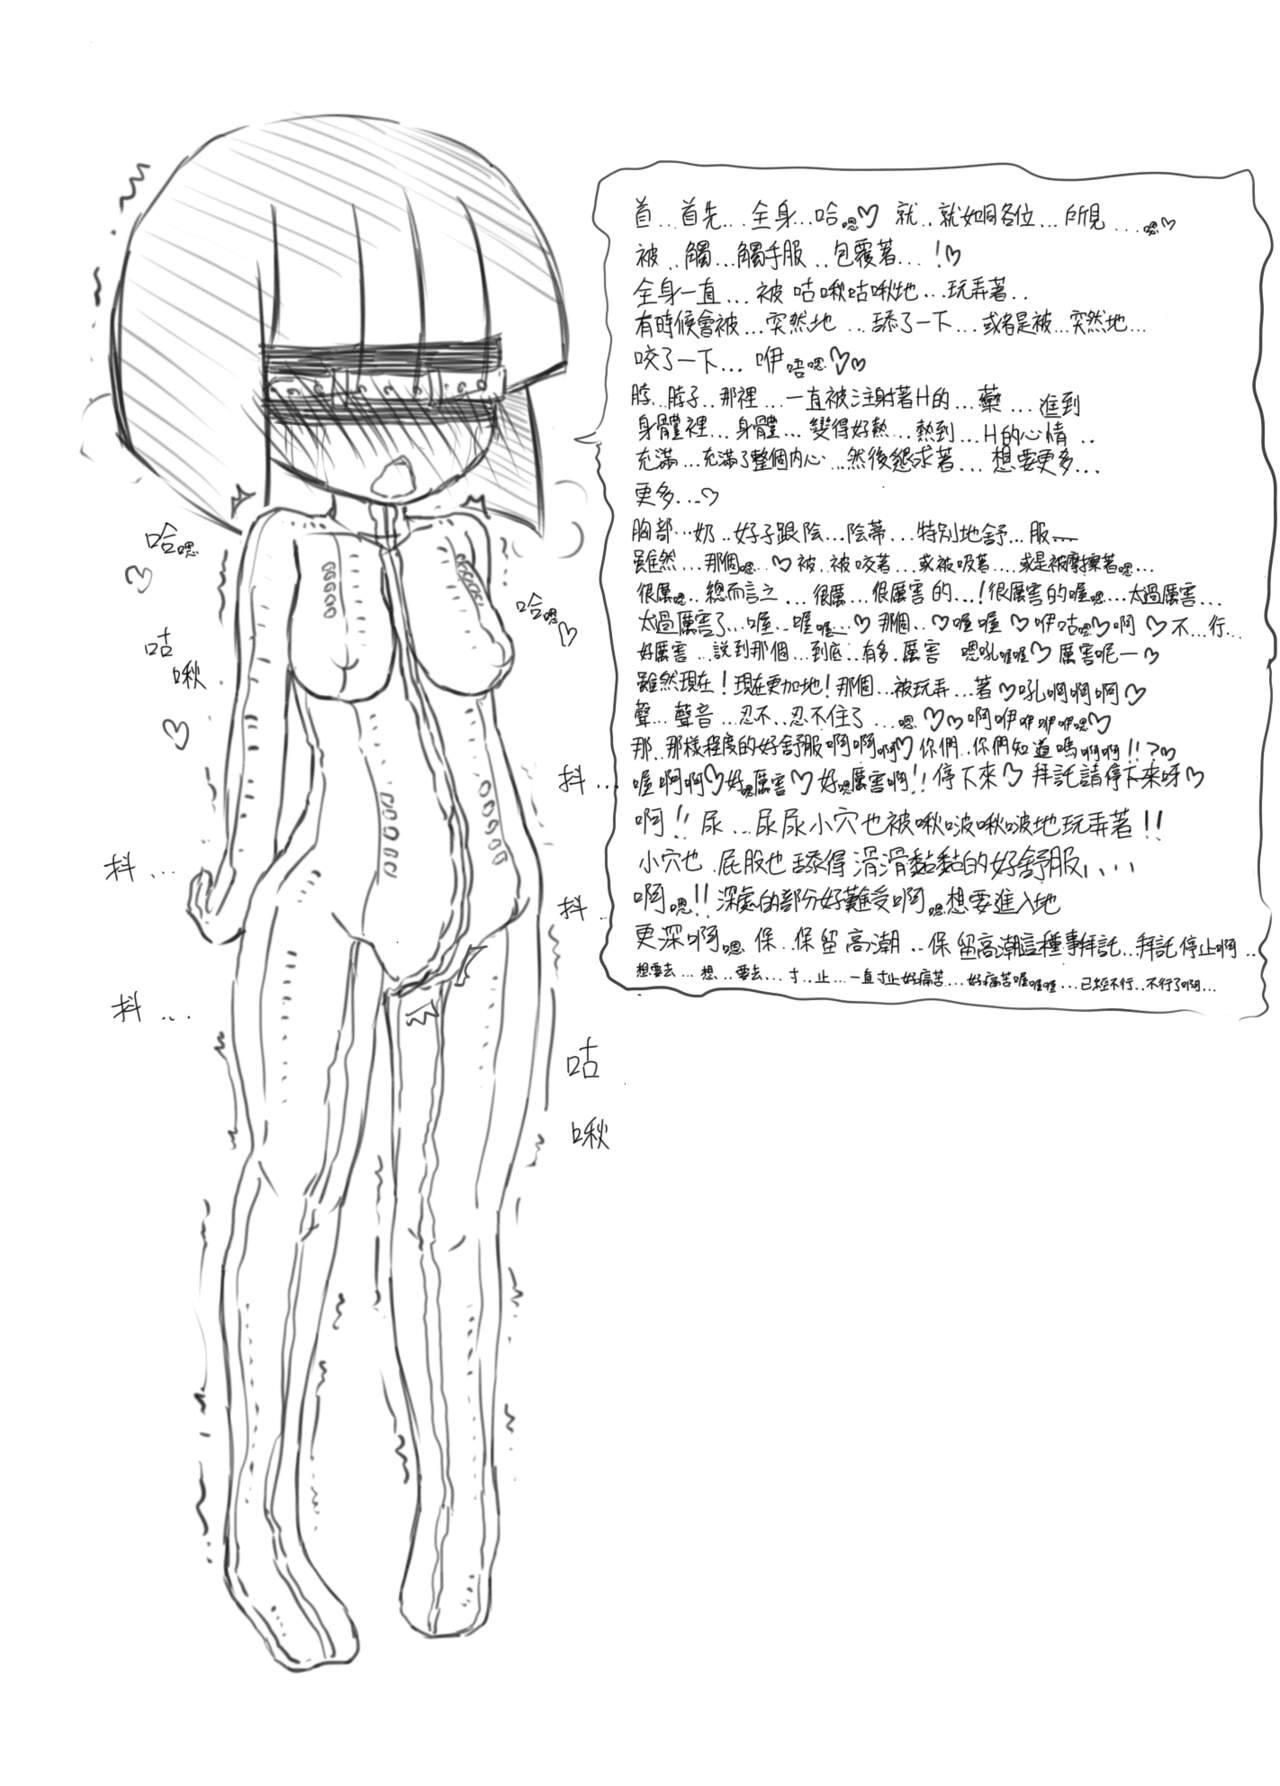 首...首先...全身...哈嗯♡ 就..就如同各位...所見...嗯♡
被..觸...觸手服..包覆著...!♡
全身一直...被咕啾咕啾地...玩弄著..
有時候會被...突然地...舔了一下...或者是被...突然地...
咬了一下...咿唔嗯♡♡
脖..脖子..那裡...一直被注射著H的...藥...進到
身體裡...身體...變得好熱...熱到...H的心情..
充滿...充滿了整個內心...然後懇求著...想要更多...
更多...♡
胸部...奶..奶子跟陰...陰蒂...特別地舒...服
雖然...那個嗯..♡被..被咬著...或被吸著....或是被摩擦著嗯...
很厲嗯..總而言之...很厲...很厲害的...!很厲害的喔嗯...太過厲害...
太過厲害了...喔...喔喔...♡那個..♡喔喔♡咿咕嗯♡啊♡不...行...
好厲害...說到那個...到底..有多.厲害 嗯吼喔喔♡厲害呢ー♡
雖然現在!現在更加地!那個...被玩弄...著♡吼啊啊啊♡
聲...聲音...忍不..忍不住了...嗯♡♡啊咿咿咿咿嗯♡
那..那樣程度的好舒服啊啊啊♡你們..你們知道嗎啊啊!!?♡
喔啊啊♡好嗯厲害♡好嗯厲害啊!!停下來♡拜託請停下來呀♡
啊!!尿...尿尿小穴也被啾啵啾啵地玩弄著!!
小穴也.屁股也舔得滑滑黏黏的好舒服....
啊嗯!!深處的部分好難受啊嗯想要進入地
更深啊嗯保..保留高潮..保留高潮這種事拜託...拜託停止啊..
想要去...想..要去...寸..止...一直寸止好痛苦...好痛苦喔喔喔...已經不行..不行了啊...
哈嗯
♡
咕
啾
♡
哈嗯
♡
抖...
抖...
抖..
抖...
咕
啾